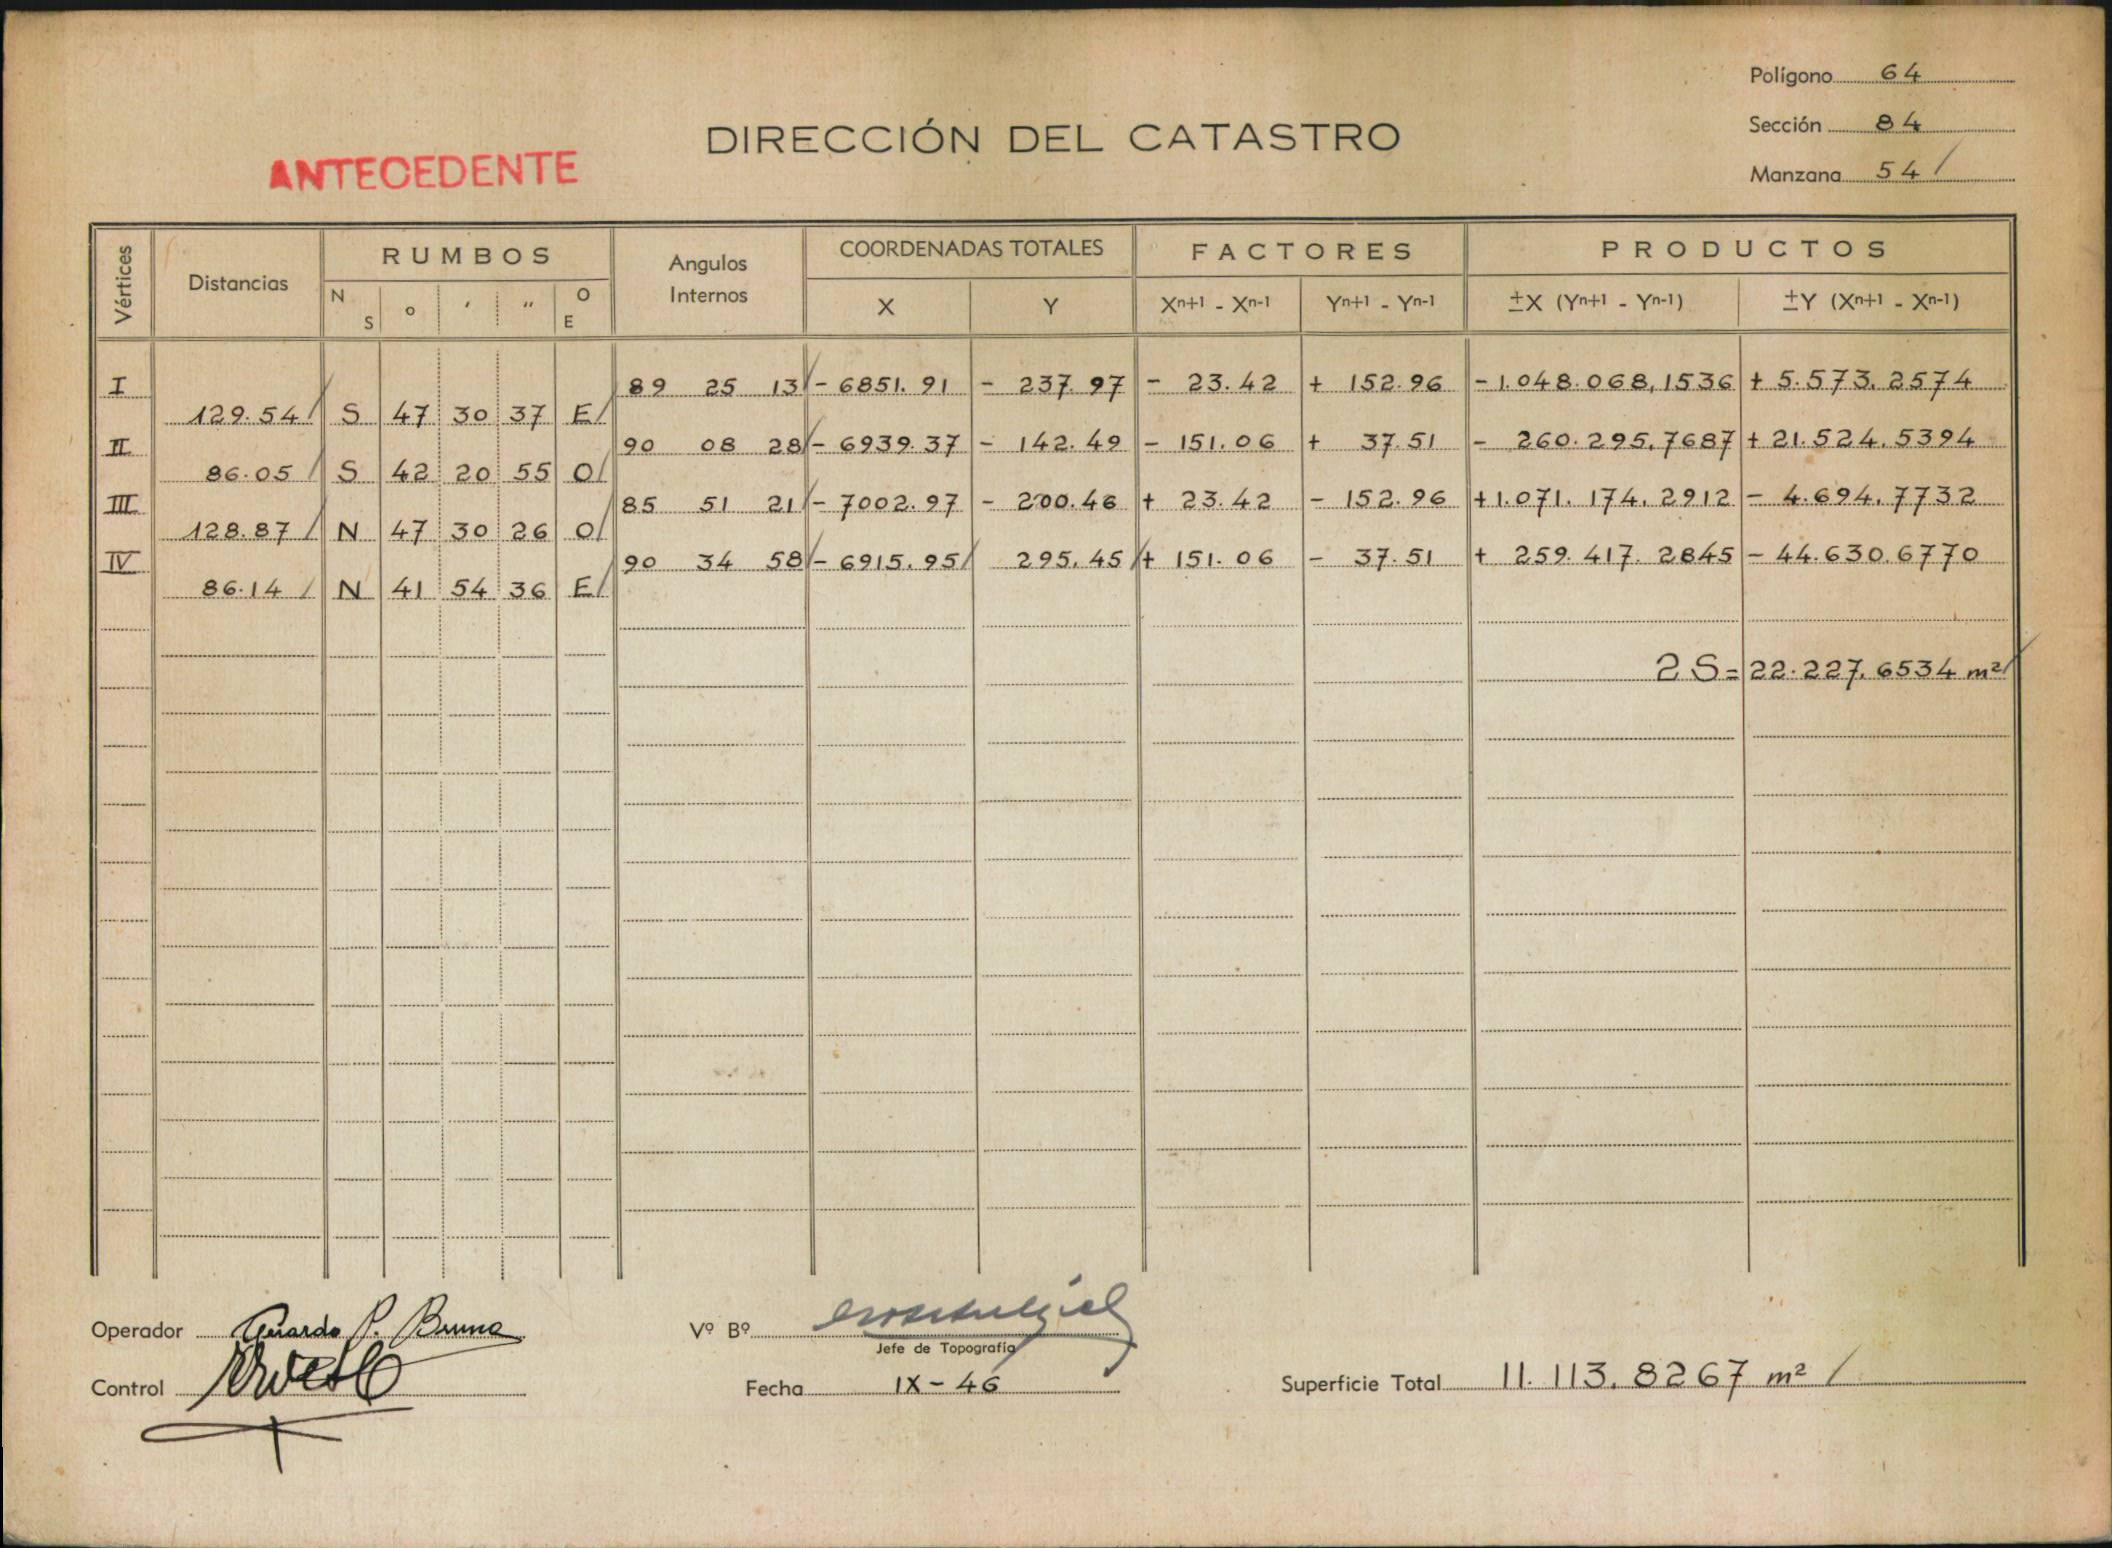 Polígono 64
DIRECCIÓN DEL CATASTRO
Sección 84
ANTECEDENTE
Manzana 54 /
Vértices Distancias RUMBOS Angulos Internos COORDENADAS TOTALES FACTORES PRODUCTOS
N S o ′ ″ O E X Y Xn+1 - Xn-1 Yn+1 - Yn-1 ±X (Yn+1 - Yn-1) ±Y (Xn+1 - Xn-1)
I 89 25 13 / - 6851.91 - 237.97 - 23.42 + 152.96 - 1.048.068,1536 + 5.573.2574
129.54 / S 47 30 37 E /
II 90 08 28 / - 6939.37 - 142.49 - 151.06 + 37.51 - 260.295,7687 + 21.524.5394
86.05 / S 42 20 55 O /
III 85 51 21 / - 7002.97 - 200.46 + 23.42 - 152.96 + 1.071.174.2912 - 4.694.7732
128.87 / N 47 30 26 O /
IV 90 34 58 / - 6915.95 / 295.45 / + 151.06 - 37.51 + 259.417.2845 - 44.630.6770
86.14 / N 41 54 36 E /
2 S = 22.227.6534 m² /
Operador Gerardo P. Bruna Vº Bº
Jefe de Topografía
Control Fecha IX - 46 Superficie Total 11.113.8267 m² /